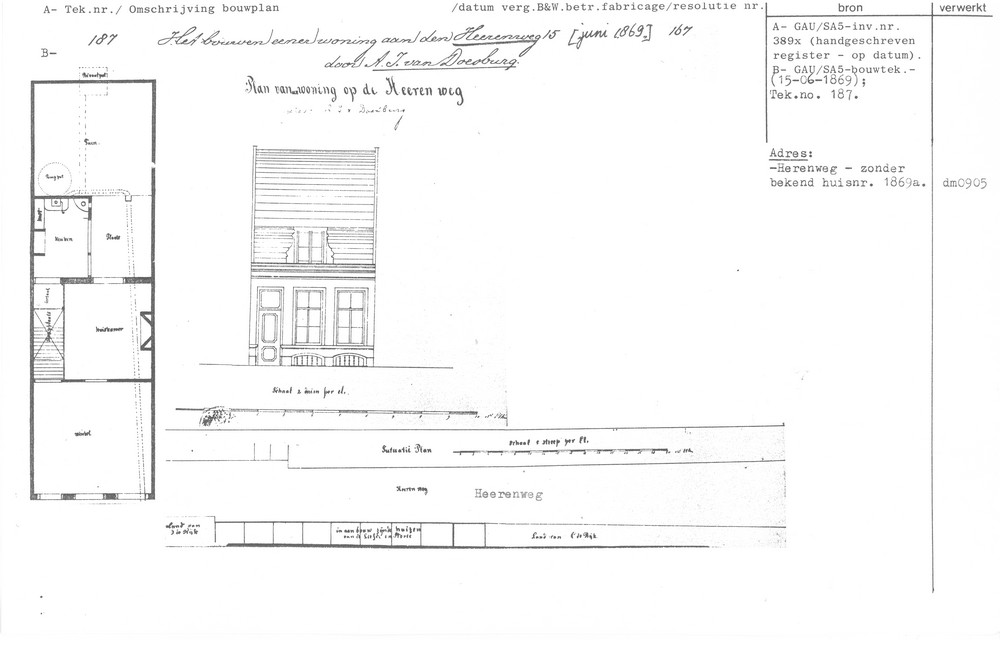 A- Tek.nr./ Omschrijving bouwplan /datum verg.B&W.betr.fabricage/resolutie nr. bron verwerkt
187 Het bouwen eener woning aan den Heerenweg 15 [juni 1869.] 167
B- door A.J. van Doesburg.
A- GAU/SA5-inv.nr.
389x (handgeschreven
register - op datum).
B- GAU/SA5-bouwtek.-
(15-06-1869);
Tek.no. 187.
Adres:
-Herenweg - zonder
bekend huisnr. 1869a. dm0905
Plan van woning op de Heeren weg
voor A J v Doesburg
Tuin
Keuken
Plaats
huiskamer
winkel
Schaal 2 duim per el.
Situatie Plan
Schaal 2 streep per El.
Heeren weg
Heerenweg
Land van
in aan bouw zijnde huizen
Land van